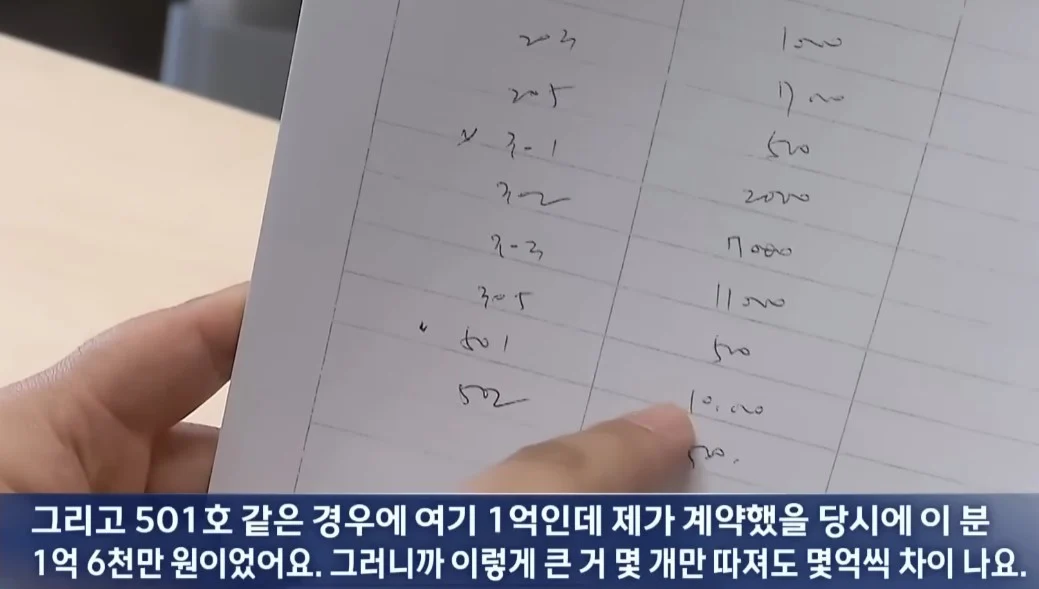 203 1000
205 17000
3-1 500
3-2 2000
3-3 7000
305 11000
501 500
502 10.000
500.
그리고 501호 같은 경우에 여기 1억인데 제가 계약했을 당시에 이 분
1억 6천만 원이었어요. 그러니까 이렇게 큰 거 몇 개만 따져도 몇억씩 차이 나요.